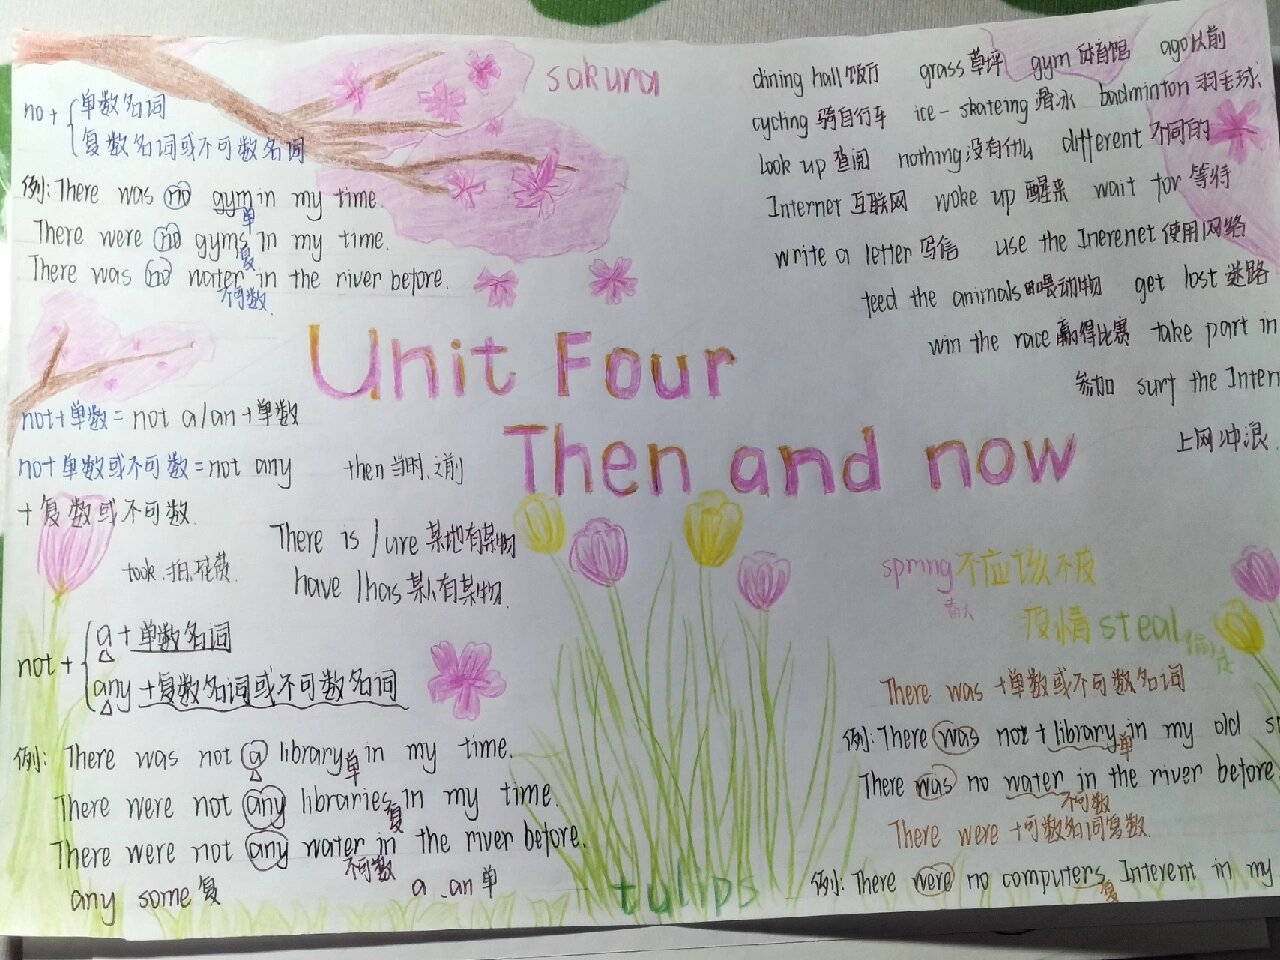 sakura
no+
单数名词
复数名词或不可数名词
例: There was no gym in my time.
单
There were no gyms in my time.
复
There was no water in the river before.
不可数
dining hall 饭厅 grass 草坪 gym 体育馆 ago 以前
cycling 骑自行车 ice-skateing 滑冰 badminton 羽毛球
look up 查阅 nothing 没有什么 different 不同的
Internet 互联网 woke up 醒来 wait for 等待
write a letter 写信 use the Inerenet 使用网络
feed the animals 喂动物 get lost 迷路
win the race 赢得比赛 take part in
参加 surf the Inter
上网冲浪
Unit Four
Then and now
not+单数=not a/an+单数
no+单数或不可数=not any
+复数或不可数.
then 当时,之前
There is /are 某地有某物
have /has 某人有某物.
took.拍.花费.
not+
a+单数名词
any+复数名词或不可数名词
例: There was not a library in my time.
单
There were not any libraries in my time.
复
There were not any water in the river before.
不可数
any some 复
a .an 单
tulips
spring 不应该不疫
春天
疫情 steal
There was +单数或不可数名词
例: There was not + library in my old s
单
There was no water in the river before
不可数
There were +可数名词复数
例: There were no computers Interent in my
复